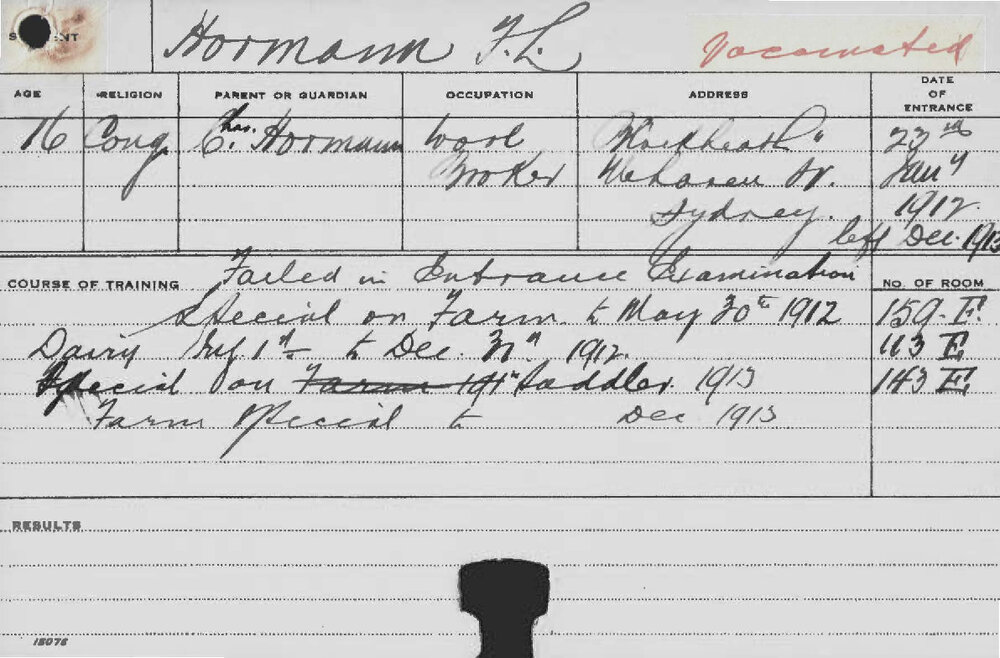 STUDENT Hormann F. L. Vaccinated
AGE RELIGION PARENT OR GUARDIAN OCCUPATION ADDRESS DATE OF ENTRANCE
16 Cong. Chas. Hormann Wool "Blackheath" 23rd
Broker St. Jany
Sydney. 1912.
left Dec. 1913
COURSE OF TRAINING Failed in Entrance Examination NO. OF ROOM
Special on Farm to May 30th 1912 159. E.
Dairy 1st to Dec. 31st 1912. 113 E
Special on Farm Saddler. 1913 143 E.
Farm Special to Dec 1913
RESULTS
15076